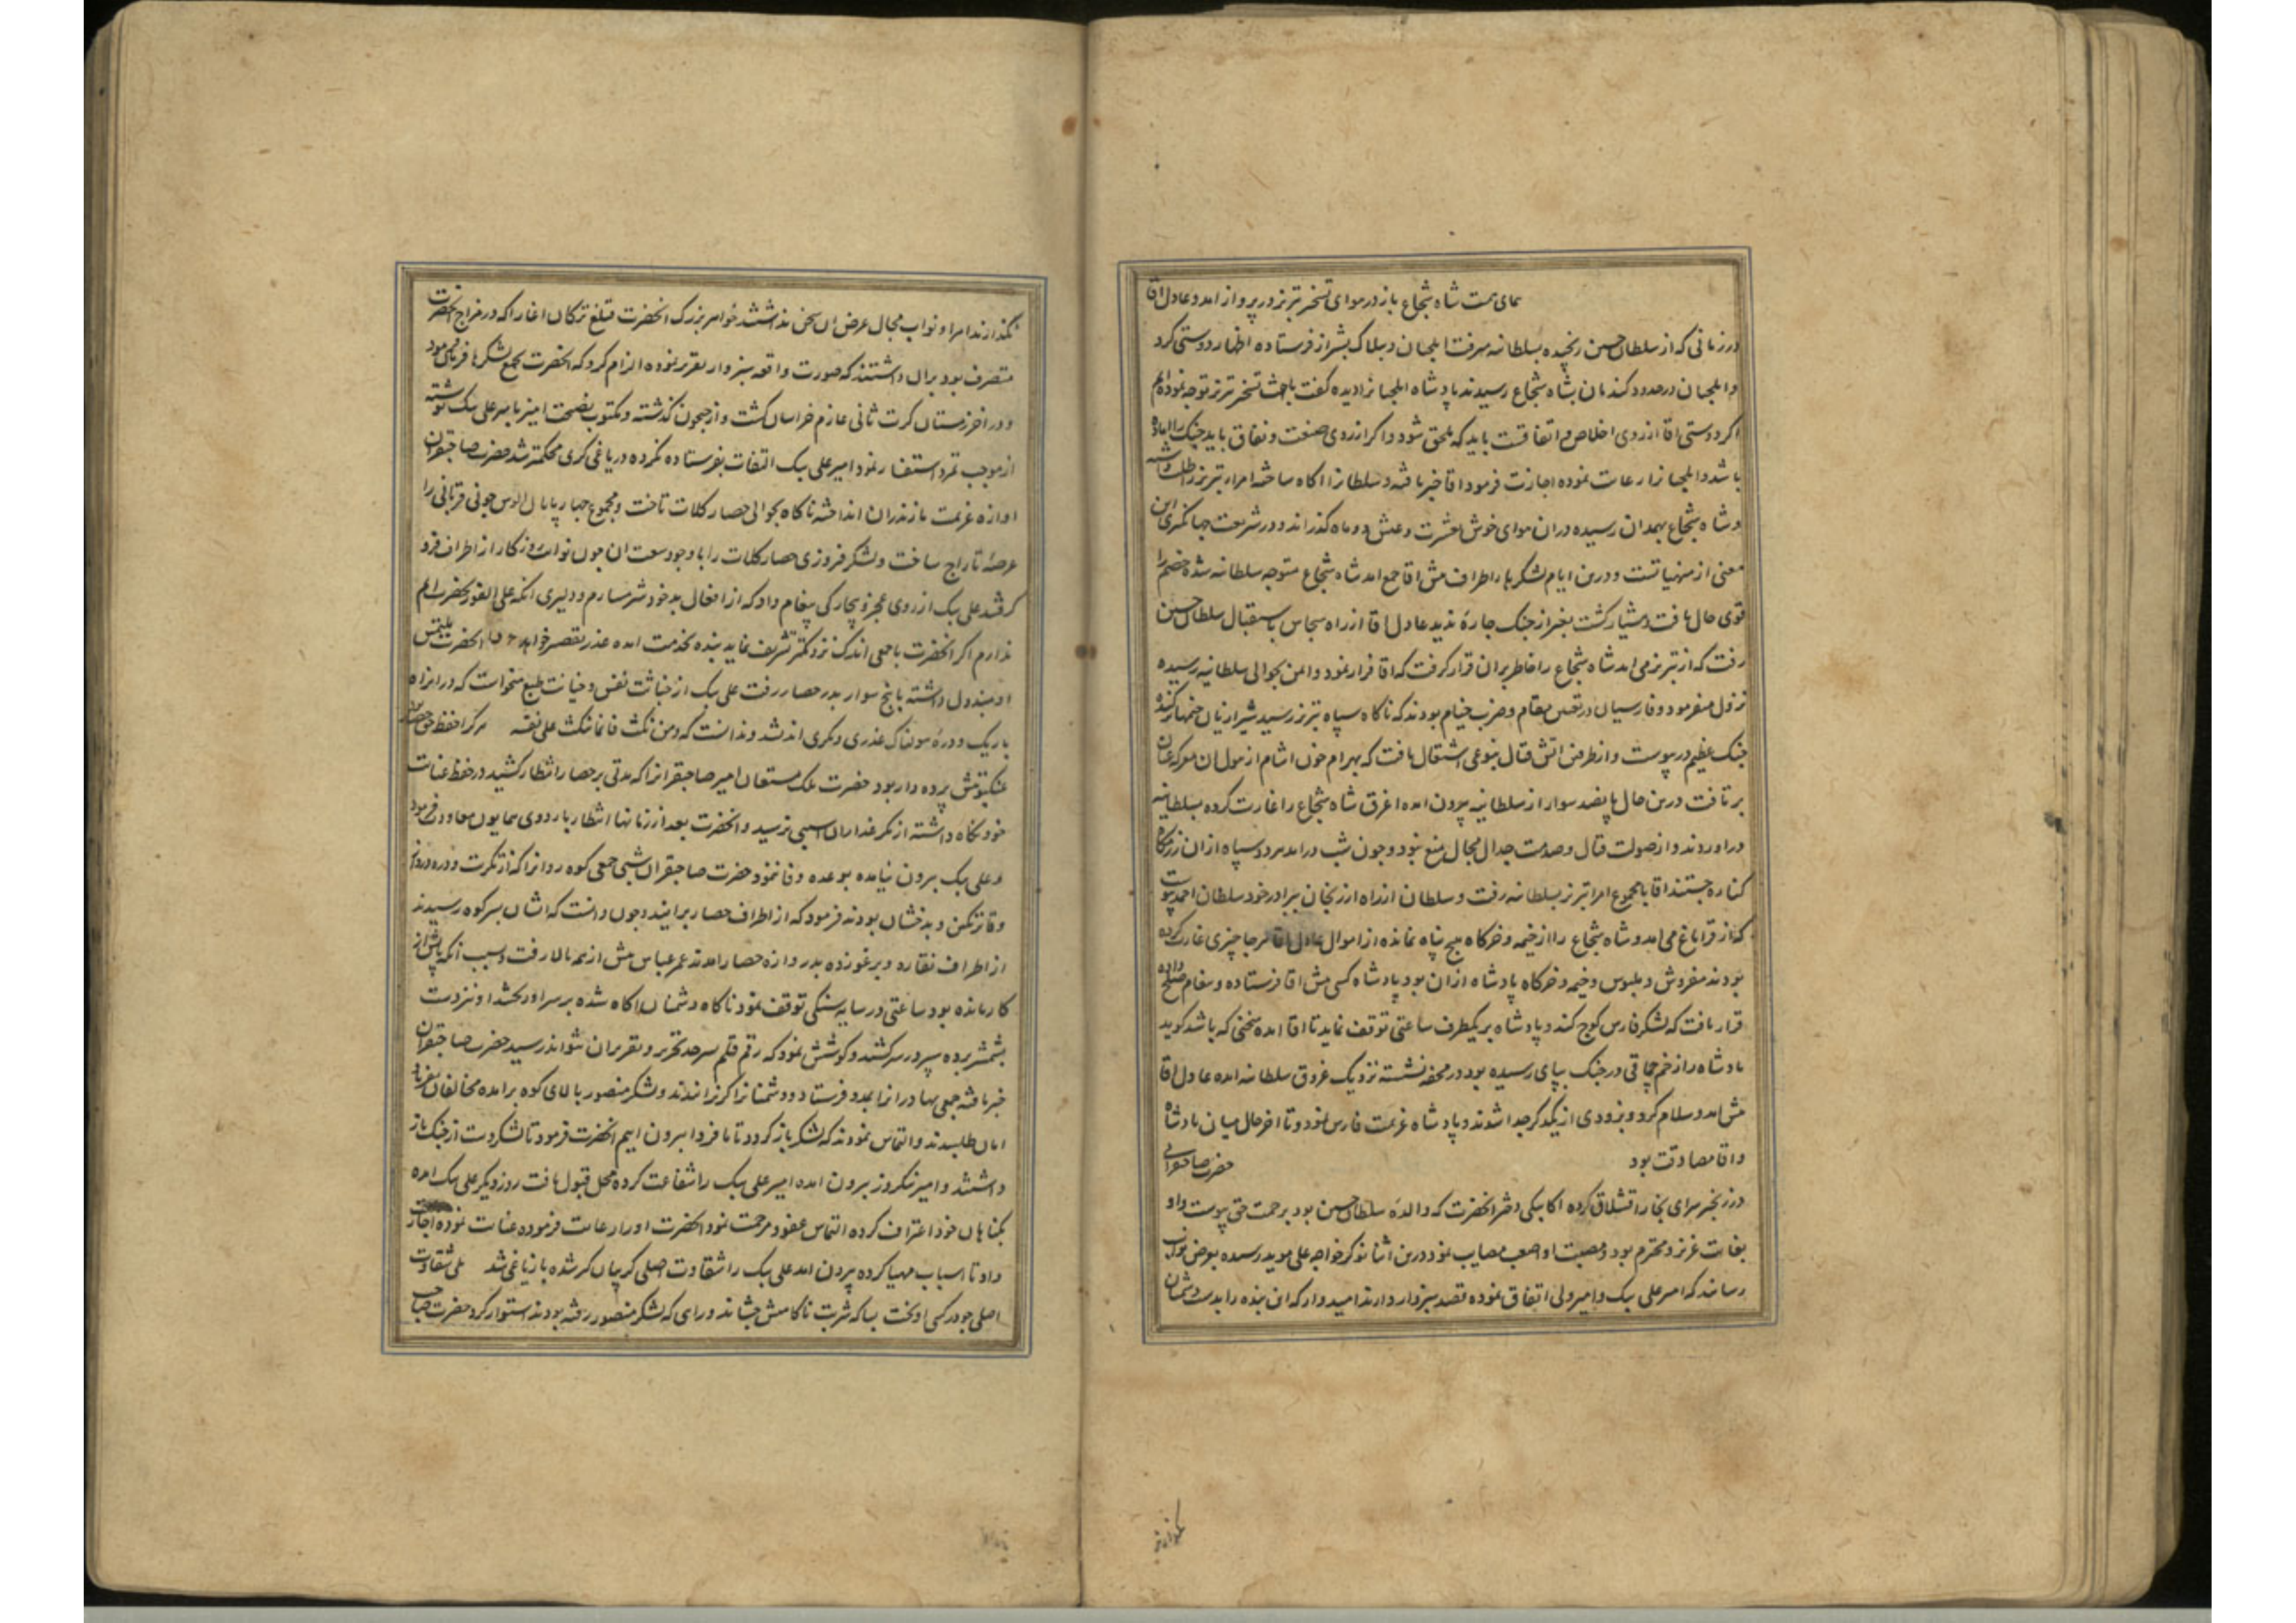 همای همت شاه شجاع باز در هوای تسخیر تبریز در پرواز امد و عادل اقا
در زمانی که از سلطان حسین رنجیده بسلطانیه میرفت ایلچیان و بیلاک بشیراز فرستاده اظهار دوستی کرد
و ایلچیان در حدود کندمان بشاه شجاع رسیدند پادشاه ایلچیانرا دیده کفت ما جهت تسخیر تبریز توجه نموده‌ایم
اکر دوستی اقا از روی اخلاص و اتفاقست باید که ملحق شود و اکر از روی صنعت و نفاق باید جنک را اماده
باشد و ایلچیانرا رعایت نموده اجازت فرمود اقا خبر یافته و سلطانرا اکاه ساخته امراء تبریز را طلب داشته
و شاه شجاع بهمدان رسیده دران هوای خوش بعشرت و عیش دو ماه کذراند و در شریعت جهانکیری این
معنی از منهیاتست و درین ایام لشکرها از اطراف پیش اقا جمع امد شاه شجاع متوجه سلطانیه شده خصم را
قوی حال یافت و هشیار کشت بغیر از جنک چاره ندید عادل اقا از راه سجاس باستقبال سلطان حسین
رفت که از تبریز می امد شاه شجاع را خاطر بران قرار کرفت که اقا فرار نمود و امن بحوالی سلطانیه رسیده
نزول میفرمود و فارسیان در تعیین مقام و ضرب خیام بودند که ناکاه سپاه تبریز رسید شیرازیان خیمها برکنده
جنک عظیم در پیوست و از طرفین اتش قتال بنوعی اشتعال یافت که بهرام خون اشام از هول ان معرکه عنان
برتافت درین حال پانصد سوار از سلطانیه بیرون امده اغرق شاه شجاع را غارت کرده بسلطانیه
دراوردند و از صولت قتال و صدمت جدال مجال منع نبود و چون شب درامد هر دو سپاه ازان رزمکاه
کناره جستند اقا با مجموع امرا تبریز بسلطانیه رفت و سلطان از راه ارزنجان ببرادر خود سلطان احمد پیوست
که از قراباغ می امد و شاه شجاع را از خیمه و خرکاه هیچ پناه نمانده از اموال عادل اقا هر جا چیزی غارت کرده
بودند مفروش و ملبوس و خیمه و خرکاه پادشاه ازان بود پادشاه کسی پیش اقا فرستاده و پیغام صلح داده
قرار یافت که لشکر فارس کوچ کند و پادشاه بریکطرف ساعتی توقف نماید تا اقا امده سخنی که باشد کوید
پادشاه را زخم چماقی در جنک بپای رسیده بود در محفه نشسته نزدیک غروق سلطانیه امده عادل اقا
پیش امد و سلام کرد و بزودی از یکدکر جدا شدند و پادشاه عزیمت فارس نمود و تا اخر حال میان پادشاه
و اقا مصادقت بود حضرت صاحبقرانی
در زنجیر سرای بخارا قشلاق کرده اکابیکی دختر انحضرت که والده سلطان حسین بود برحمت حق پیوست و او
بغایت عزیز و محترم بود و مصیبت او اصعب مصایب نمود درین اثنا نوکر خواجه علی موید رسیده بعرض نواب
رسانید که امیر علی بیک و امیر ولی اتفاق نموده قصد سبزوار دارند امیدوار که ان بنده را بدست دشمنان
نکذارند امرا و نواب مجال عرض ان سخن نداشتند خواهر بزرک انحضرت قتلغ ترکان اغا را که در مزاج انحضرت
متصرف بود بران داشتند که صورت واقعه سبزوار تقریر نموده الزام کرد که انحضرت بجمع لشکرها فرمان فرمود
و در اخر زمستان کرت ثانی عازم خراسان کشت و از جیحون کذشته و مکتوب نصیحت امیز بامیر علی بیک نوشته
از موجب تمرد استفسار نمود امیر علی بیک التفات بفرستاده نکرده در یاغی کری محکمتر شد حضرت صاحبقران
اوازه عزیمت مازندران انداخته ناکاه بحوالی حصار کلات تاخت و مجموع چهارپایان الوس جونی قربانی را
عرصه تاراج ساخت و لشکر فروزی حصار کلات را با وجود وسعت ان چون نوائب روزکار از اطراف فرو
کرفتند علی بیک از روی عجز و بیچارکی پیغام داد که از افعال بد خود شرمسارم و دلیری انکه علی الفور بحضرت ایم
ندارم اکر انحضرت با جمعی اندک نزدیکتر تشریف نماید بنده بخدمت امده عذر تقصیر خواهد انحضرت ملتمس
او مبذول داشته با پنج سوار بدر حصار رفت علی بیک از خباثت نفس و خیانت طبع میخواست که در ان راه
باریک و دره هولناک غدری و مکری اندیشد و ندانست که و من نکث فانما ینکث علی نفسه هر کرا حفظ حق حصار
عنکبوتش پرده دار بود حضرت ملک مستعان امیر صاحبقرانرا که مدتی بر حصار انتظار کشید در حفظ عنایت
خود نکاه داشته از مکر غداران اسیبی نرسید و انحضرت بعد از زمانها انتظار باردوی همایون معاودت فرمود
و علی بیک بیرون نیامده بوعده وفا ننمود حضرت صاحبقران شبی جمعی کوه روانرا که از مکریت و دره دروازه
وقاز تکین و بدخشان بودند فرمود که از اطراف حصار برایند و چون دانست که ایشان بسر کوه رسیدند
از اطراف نقاره و برغو زده بدروازه حصار امدند عمر عباس پیش از همه بالا رفت و سبب انکه پایش از
کار مانده بود ساعتی در سایه سنکی توقف نمود ناکاه دشمنان اکاه شده بر سر او ریختند او نیز دست
بشمشیر برده سپر در سر کشید و کوشش نمود که رقم قلم سرحد تحریر و تقریر ان نتواند رسید حضرت صاحبقران
خبر یافته جمعی بهادرانرا بمدد فرستاد و دشمنانرا کریزانیدند و لشکر منصور بالای کوه برامده مخالفان بفریاد
امان طلبیدند و التماس نمودند که لشکر باز کردد تا ما فردا بیرون اییم انحضرت فرمود تا لشکر دست از جنک باز
داشتند و امیر نیکروز بیرون امده امیر علی بیک را شفاعت کرده محل قبول یافت روز دیکر علی بیک امده
بکناهان خود اعتراف کرده التماس عفو و مرحمت نمود انحضرت او را رعایت فرموده عنایت نموده اجازت
داد تا اسباب مهیا کرده بیرون اید علی بیک را شقاوت اصلی کریبان کیر شده باز یاغی شد بلی شقاوت
اصلی چو در کسی اویخت بسا که شربت ناکامیش چشاند و راهی که لشکر منصور رفته بودند استوار کرد حضرت صاحب